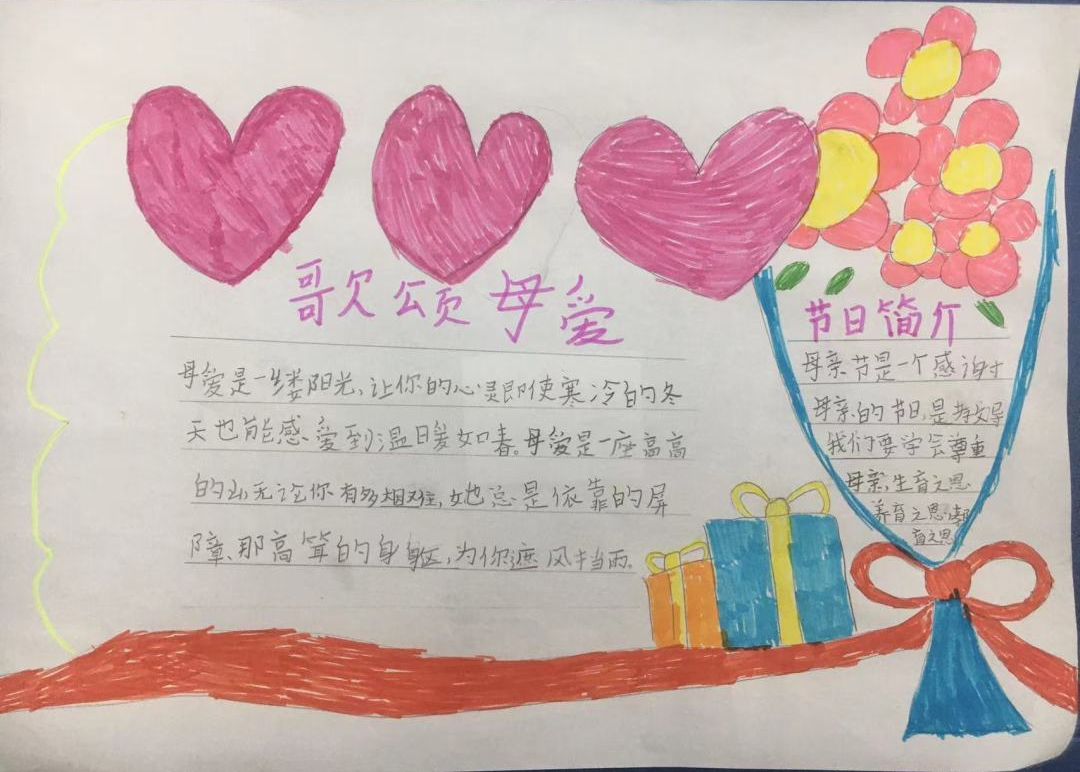 歌颂母爱
母爱是一缕阳光,让你的心灵即使寒冷的冬
天也能感受到温暖如春。母爱是一座高高
的山,无论你有多艰难,她总是依靠的屏
障、那高耸的身躯,为你遮风挡雨。
节日简介
母亲节是一个感谢
母亲的节日,是教导
我们要学会尊重
母亲,生育之恩
养育之恩
育之恩